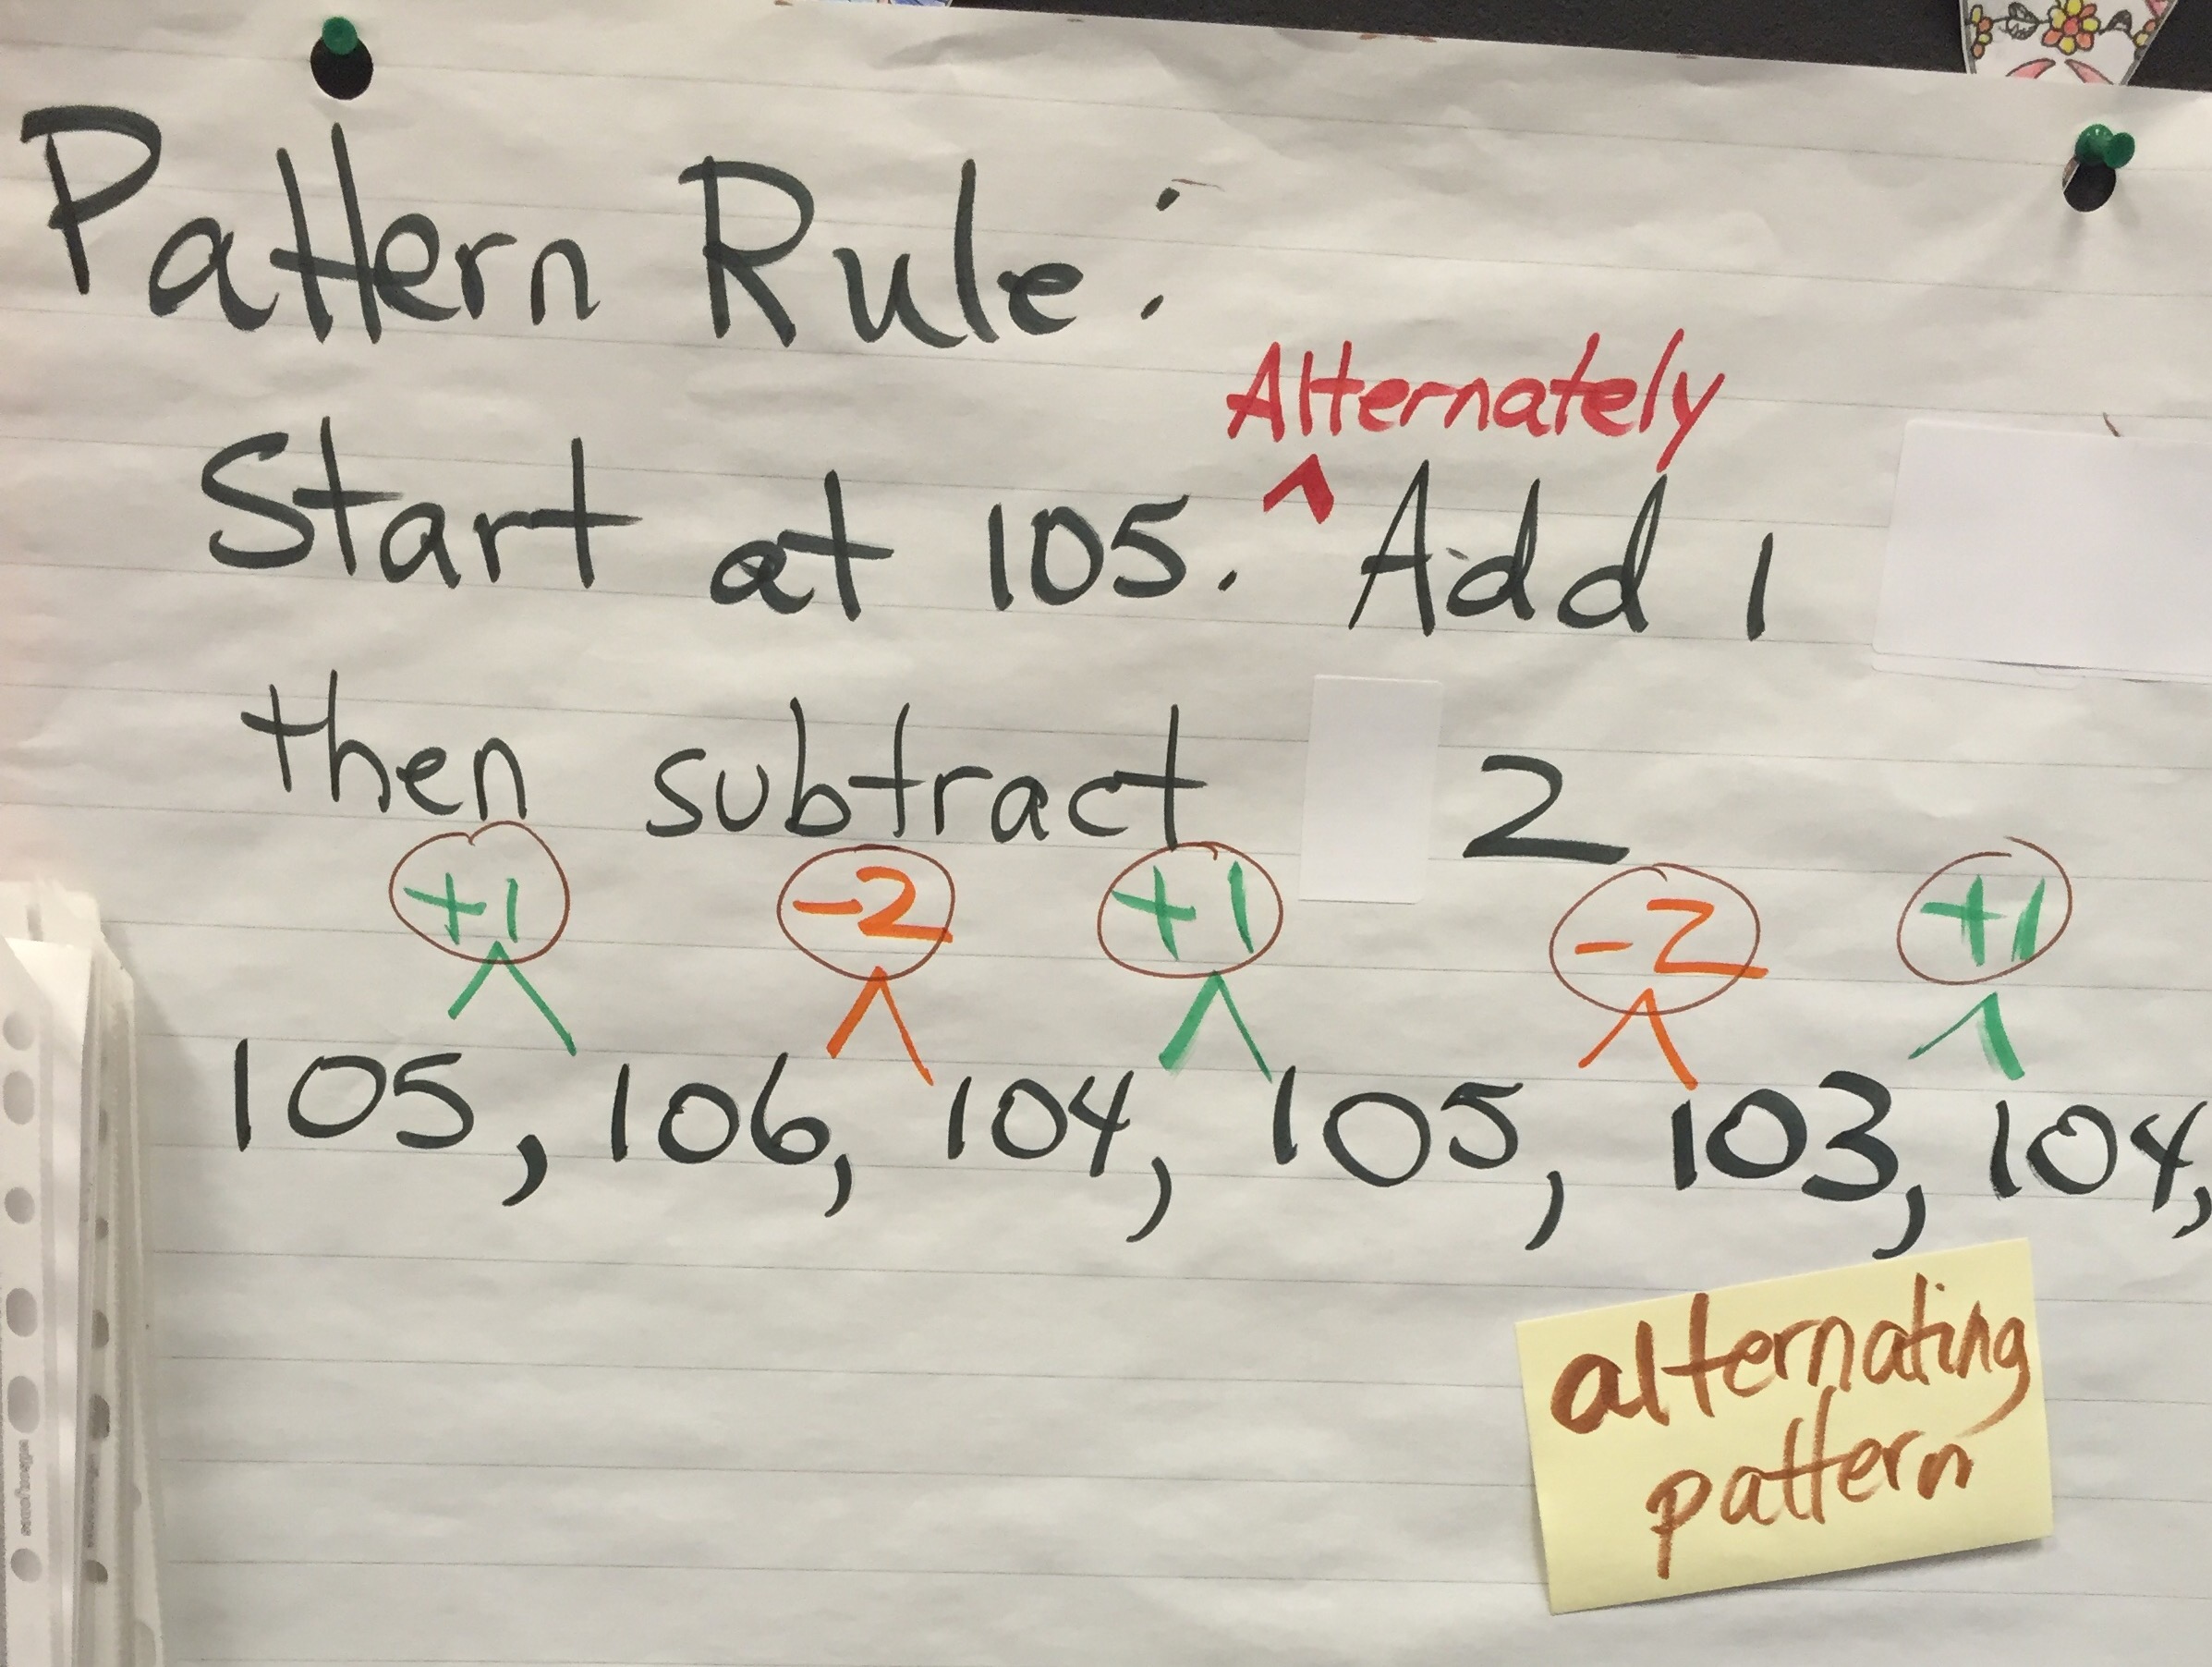 Pattern Rule:
Alternately
Start at 105. ^ Add 1
then subtract 2
+1 -2 +1 -2 +1
105, 106, 104, 105, 103, 104,
alternating
pattern